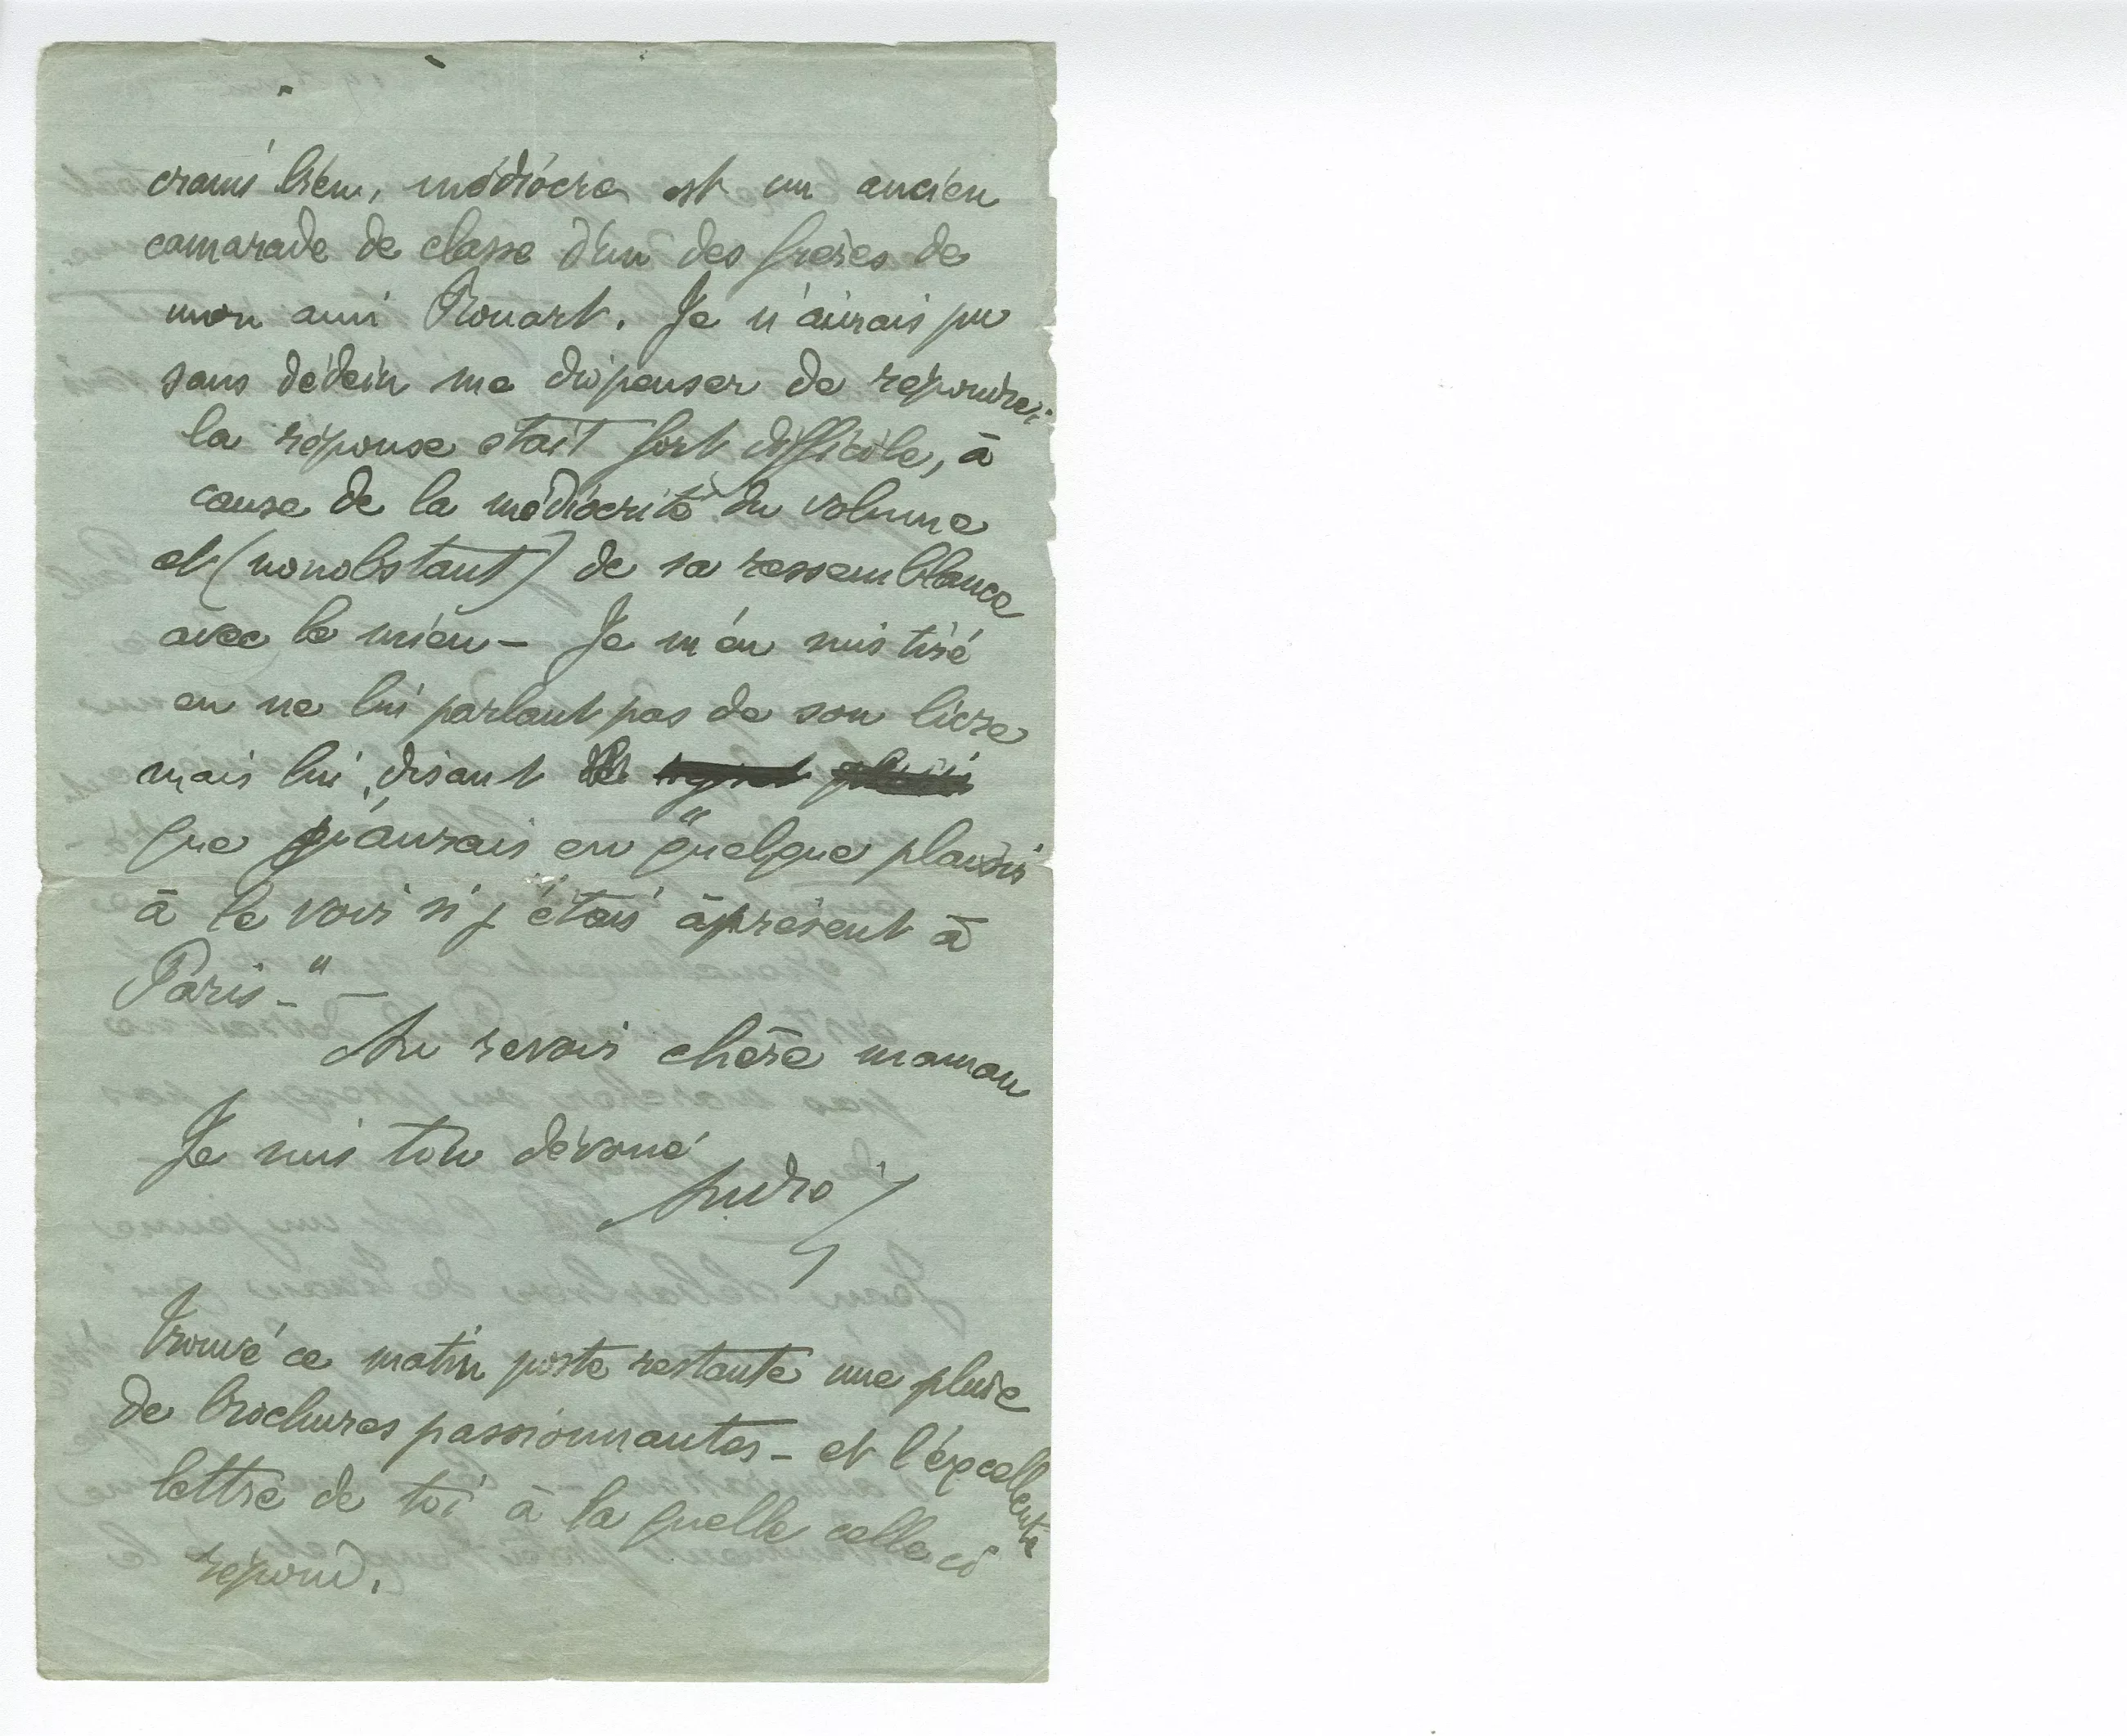 crains bien, médiocre est un ancien
camarade de classe d'un des frères de
mon ami Rouart. Je n'aurais pu
sans dédain me dispenser de répondre;
la réponse était fort difficile, à
cause de la médiocrité du volume
et (nonobstant) de sa ressemblance
avec le mien – Je m'en suis tiré
en ne lui parlant pas de son livre
mais lui disant
que j'aurais eu "quelque plaisir
à le voir si j'étais àprésent à
Paris – " –
Au revoir chère maman
Je suis ton dévoué
André
Trouvé ce matin poste restante une pluie
de brochures passionnantes – et l'excellente
lettre de toi à la quelle celle ci
répond.